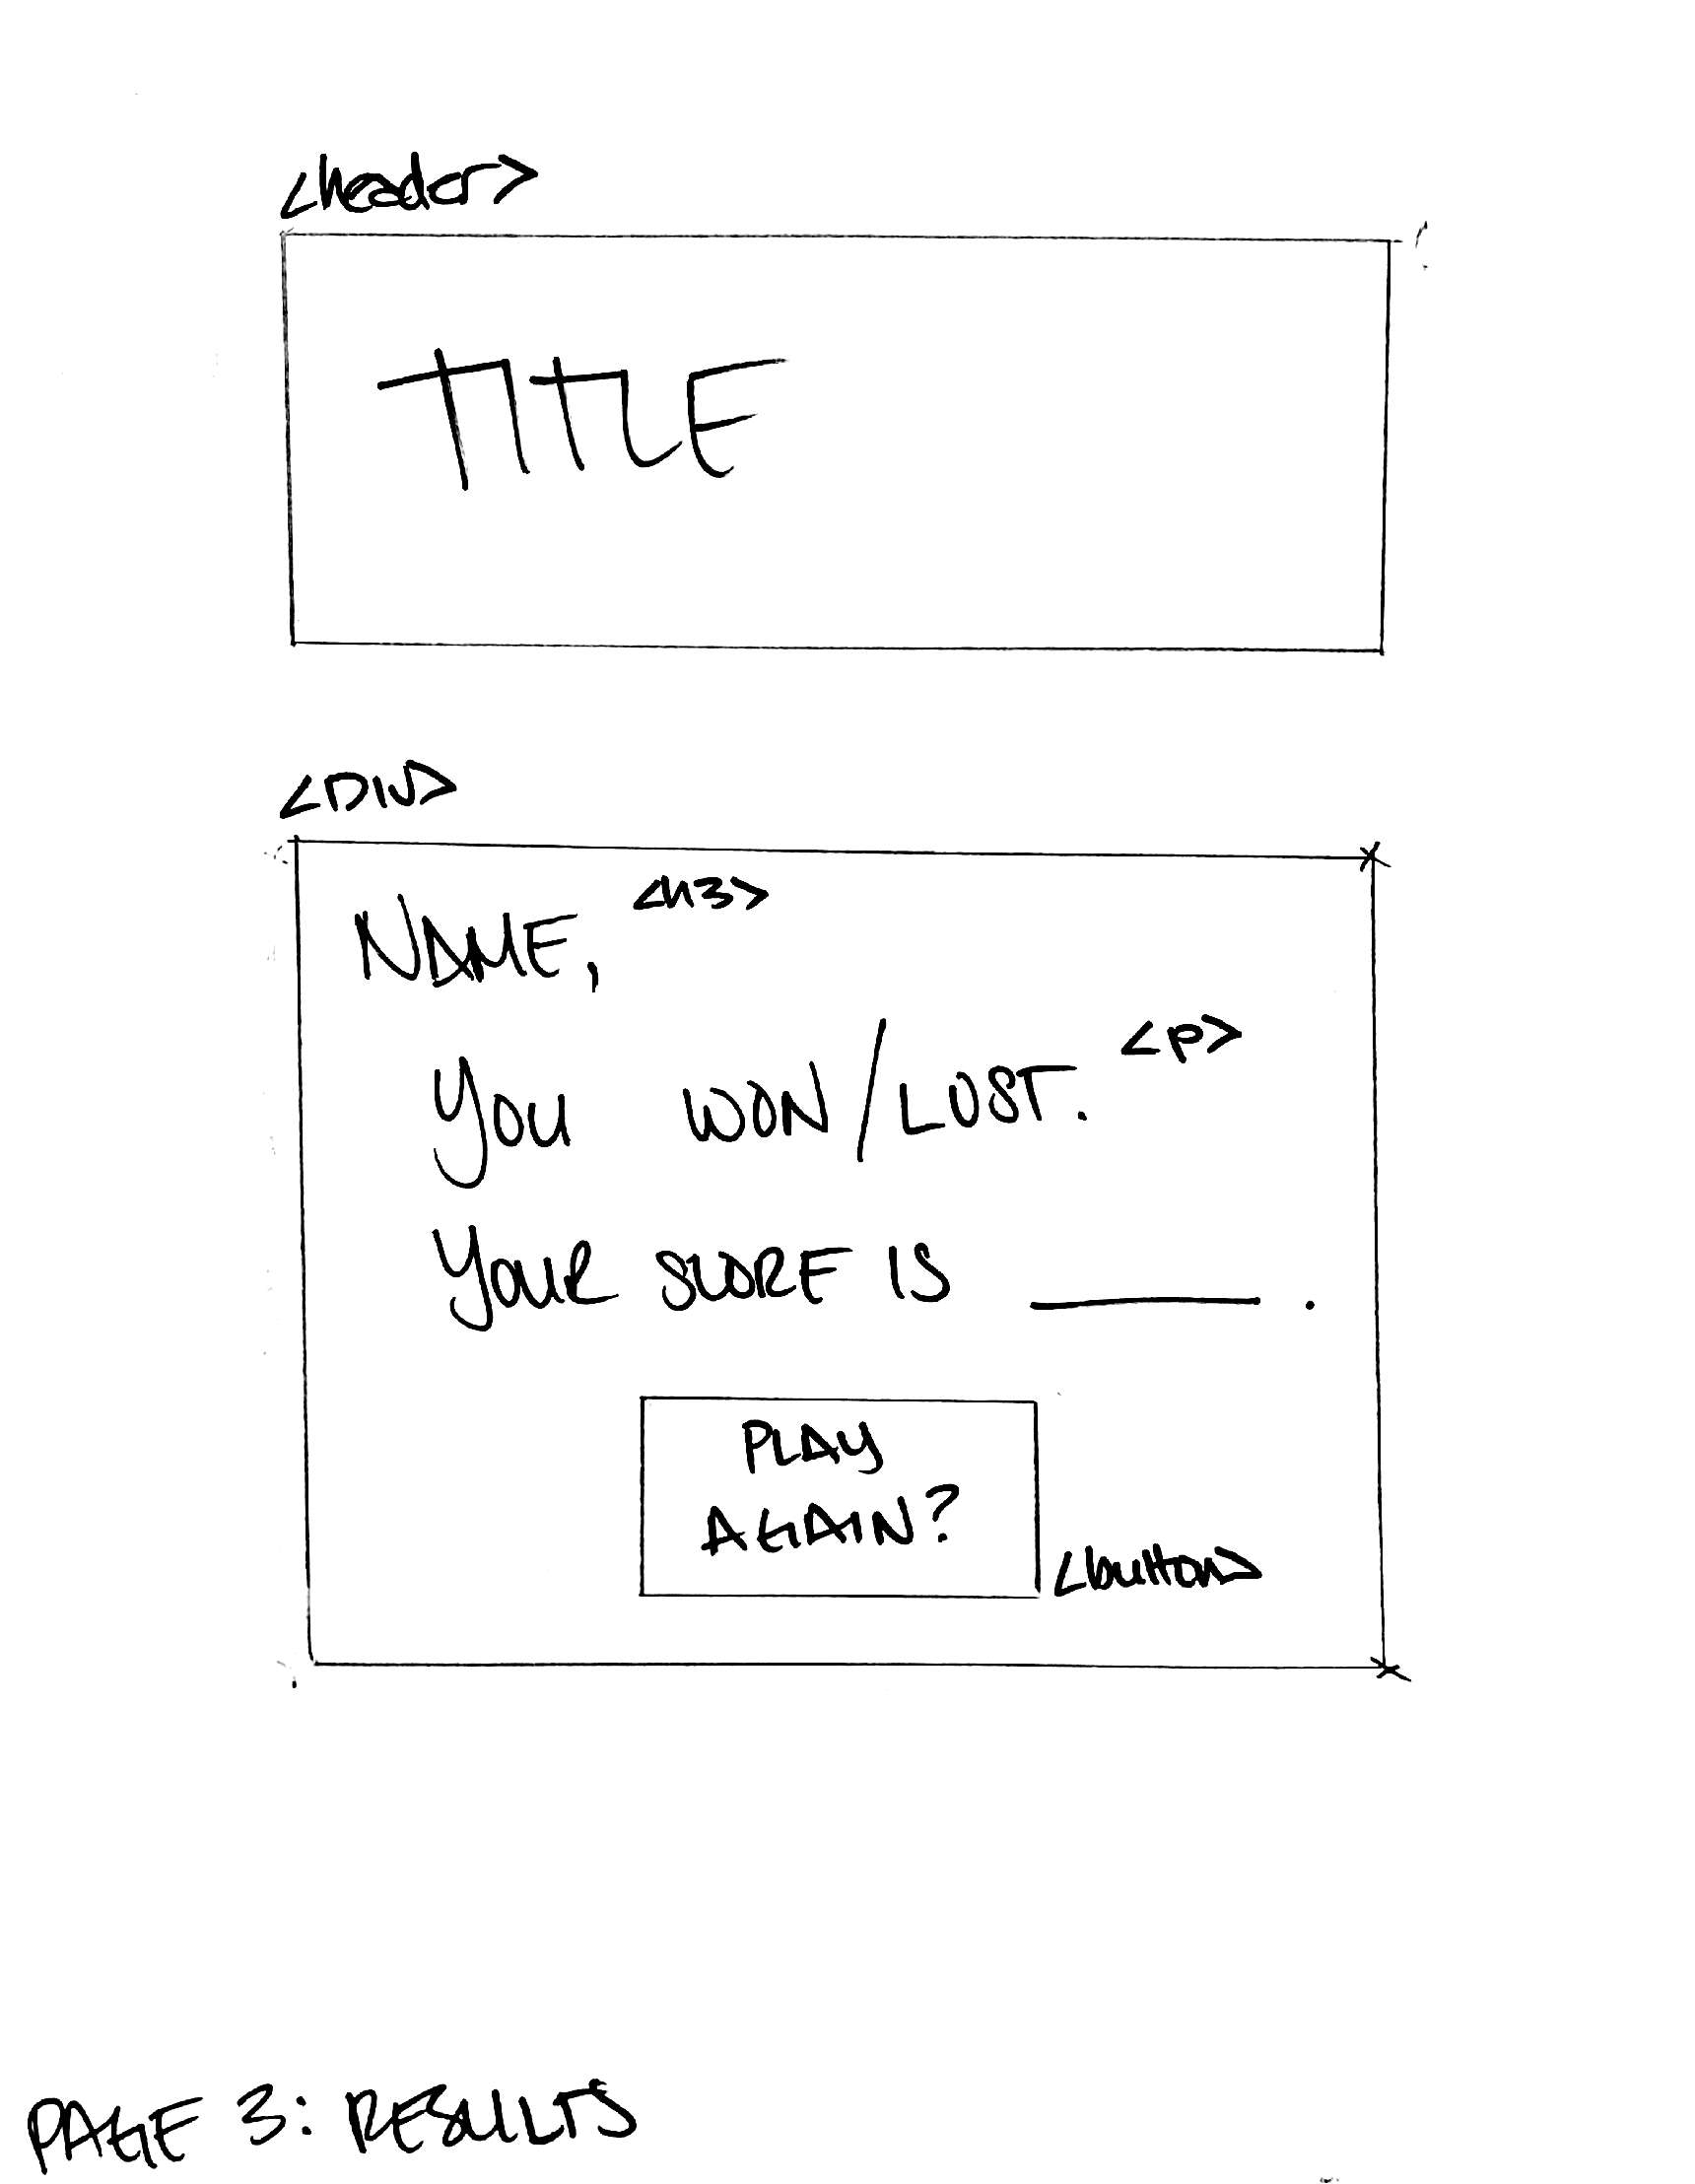 <header>
TITLE
<DIV>
NAME, <h3>
YOU WON/LOST. <p>
YOUR SCORE IS ______ .
PLAY
AGAIN?
<button>
PAGE 3: RESULTS